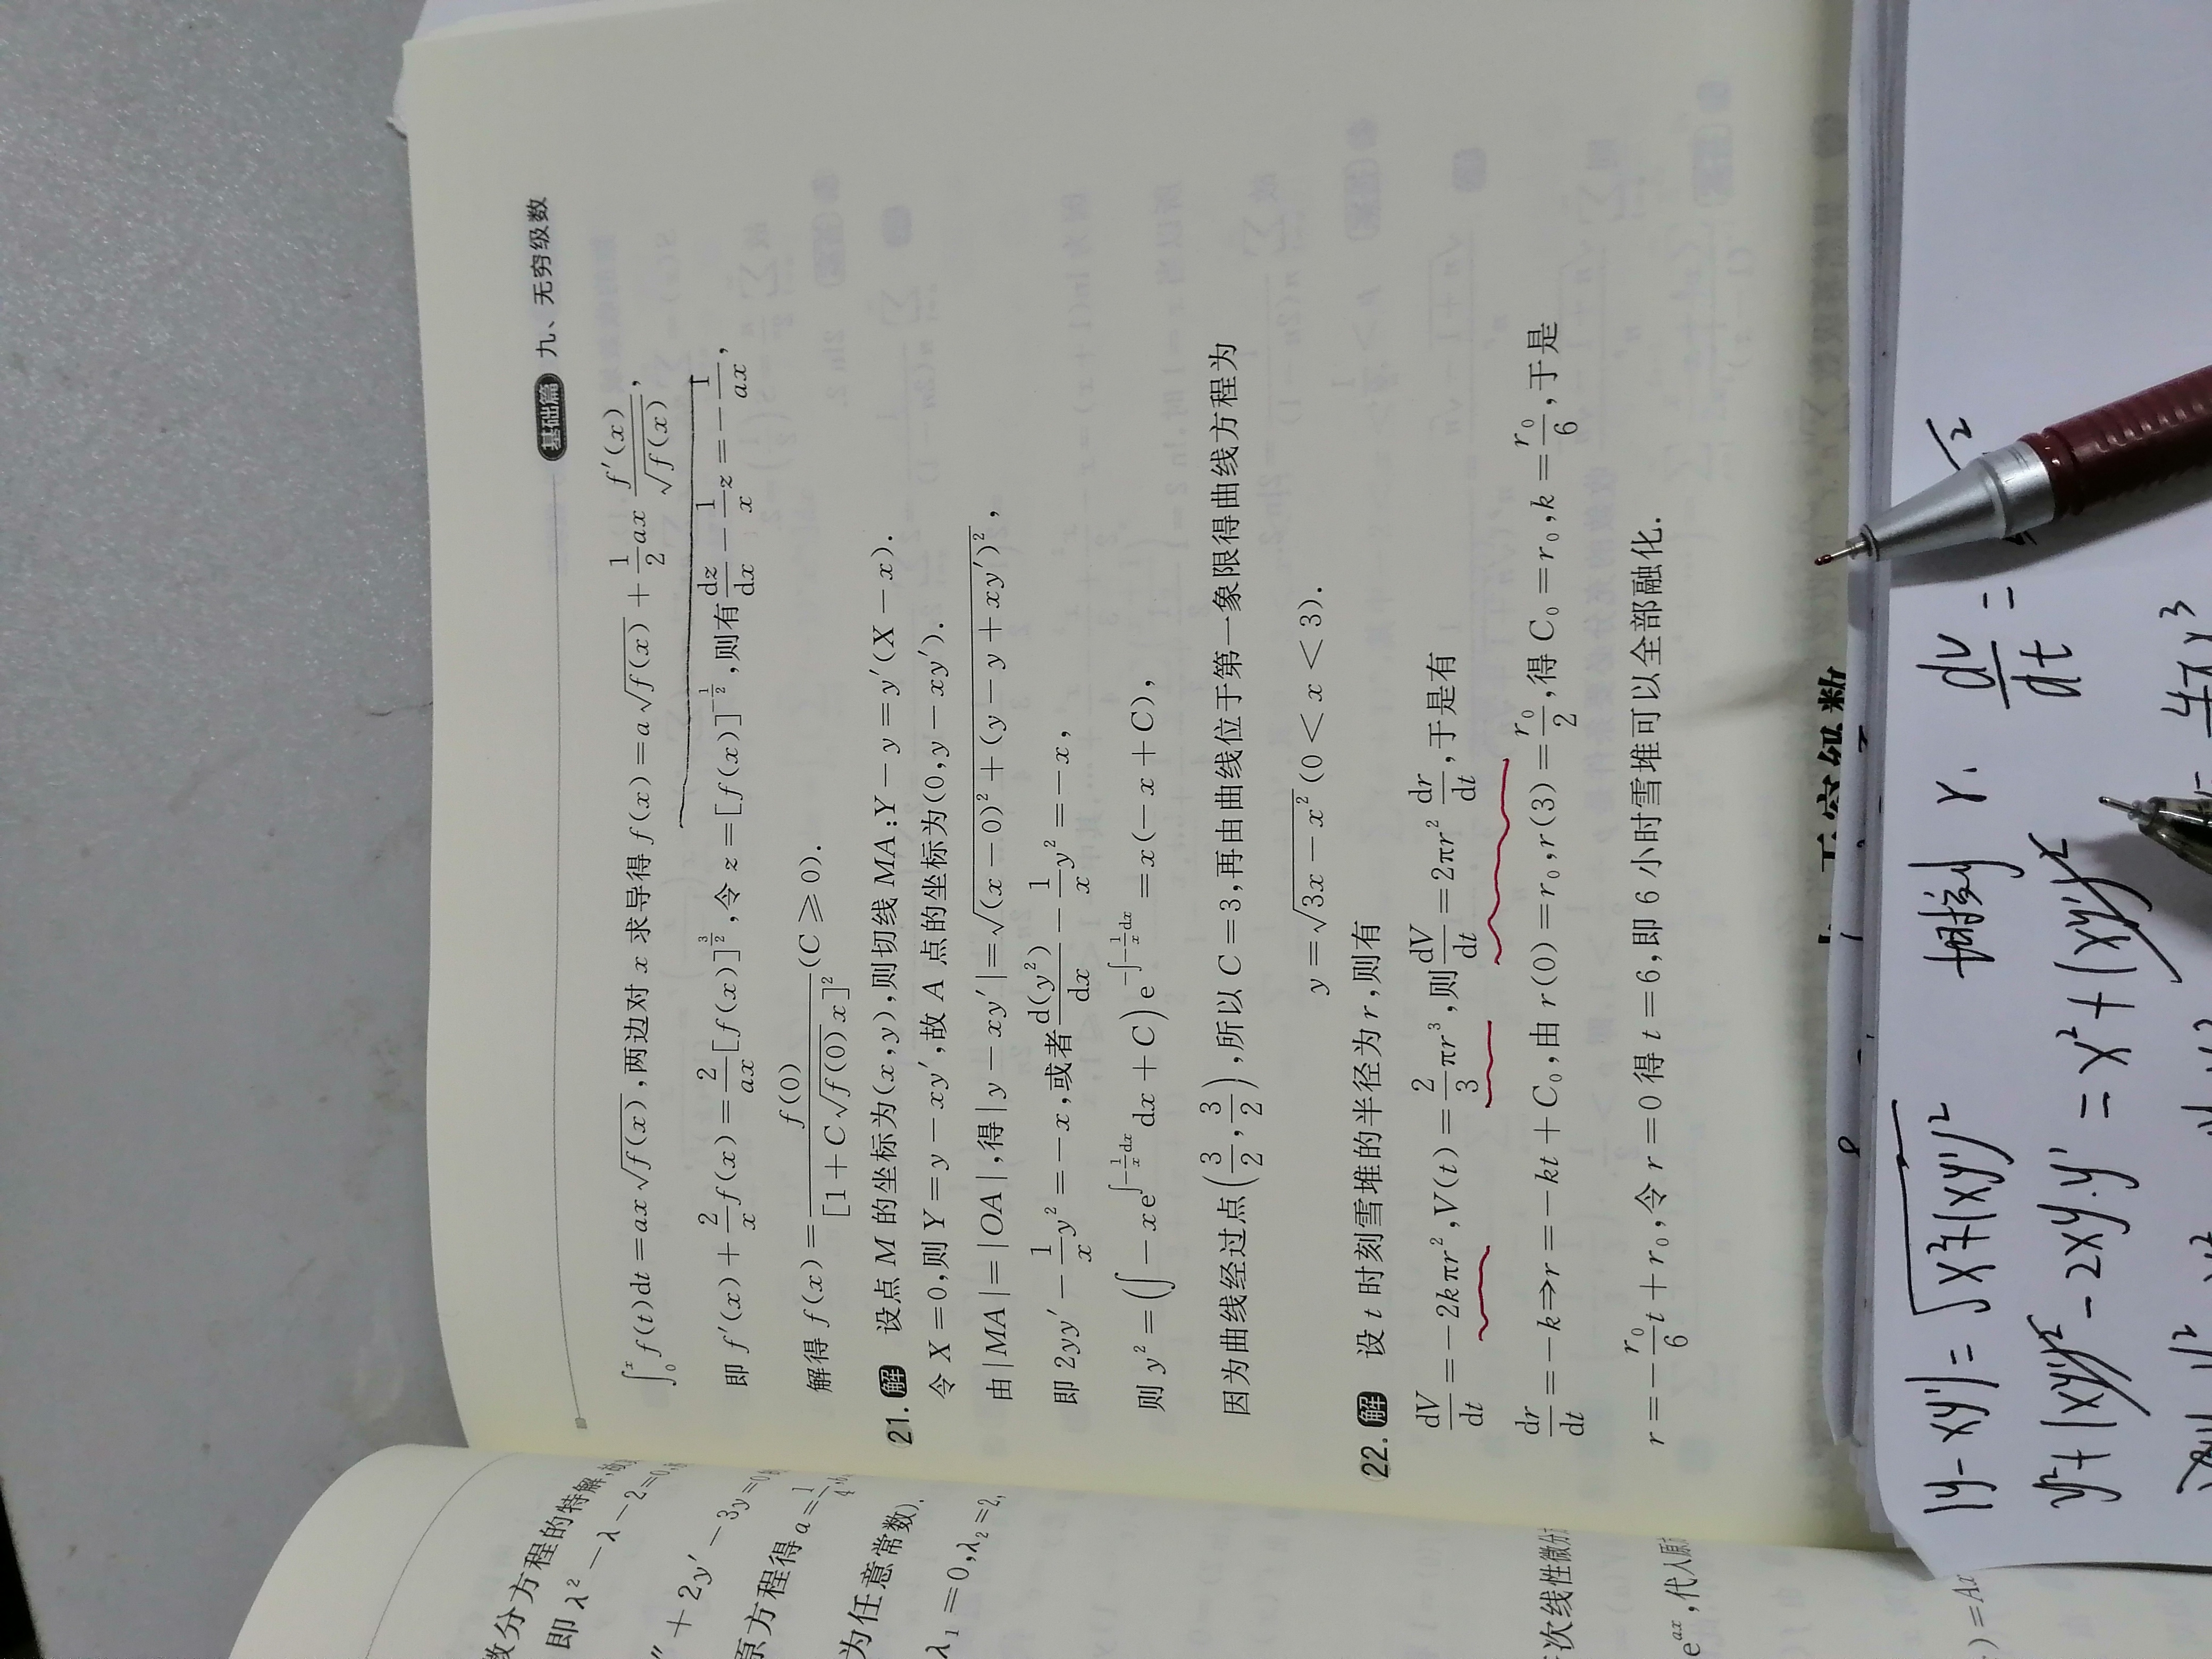 基础篇 九、无穷级数
∫₀ˣ f(t)dt = ax√f(x), 两边对 x 求导得 f(x) = a√f(x) + 1/2 ax f′(x)/√f(x),
即 f′(x) + 2/x f(x) = 2/(ax) [f(x)]^(3/2), 令 z = [f(x)]^(-1/2), 则有 dz/dx − 1/x z = − 1/(ax),
解得 f(x) = f(0)/[1 + C√f(0) x]² (C ≥ 0).
21. 解 设点 M 的坐标为(x,y), 则切线 MA: Y − y = y′(X − x).
令 X = 0, 则 Y = y − xy′, 故 A 点的坐标为(0, y − xy′).
由 |MA| = |OA|, 得 |y − xy′| = √((x − 0)² + (y − y + xy′)²),
即 2yy′ − 1/x y² = −x, 或者 d(y²)/dx − 1/x y² = −x,
则 y² = (∫ −x e^(∫−1/x dx) dx + C) e^(−∫−1/x dx) = x(−x + C),
因为曲线经过点(3/2, 3/2), 所以 C = 3, 再由曲线位于第一象限得曲线方程为
y = √(3x − x²) (0 < x < 3).
22. 解 设 t 时刻雪堆的半径为 r, 则有
dV/dt = −2kπr², V(t) = 2/3 πr³, 则 dV/dt = 2πr² dr/dt, 于是有
dr/dt = −k ⇒ r = −kt + C₀, 由 r(0) = r₀, r(3) = r₀/2, 得 C₀ = r₀, k = r₀/6, 于是
r = − r₀/6 t + r₀, 令 r = 0 得 t = 6, 即 6 小时雪堆可以全部融化.
数分方程的特解,
即 λ² − λ − 2 = 0,
″ + 2y′ − 3y = 0
原方程得 a = 1/4,
为任意常数).
λ₁ = 0, λ₂ = 2,
次线性微分
e^(ax), 代入原
) = Ax
无穷级数
|y − xy′| = √(x² + (xy′)²)
y² + (xy′)² − 2xy·y′ = x² + (xy′)²
t时刻 r. dv/dt =